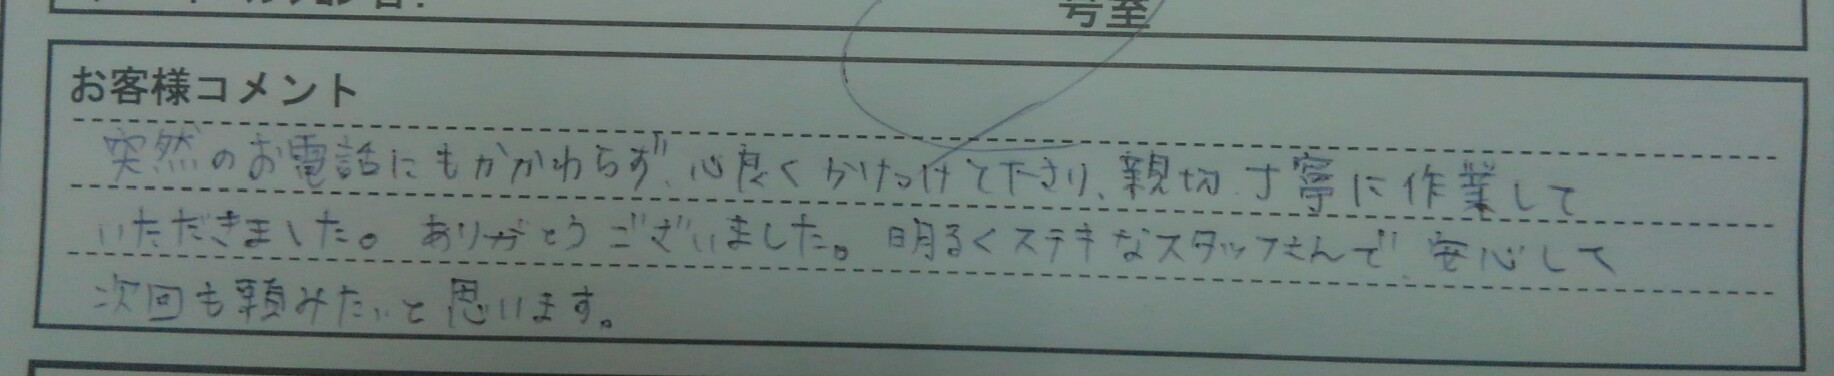 号室
お客様コメント
突然のお電話にもかかわらず、心良くかけつけて下さり、親切、丁寧に作業して
いただきました。ありがとうございました。明るくステキなスタッフさんで、安心して
次回も頼みたいと思います。